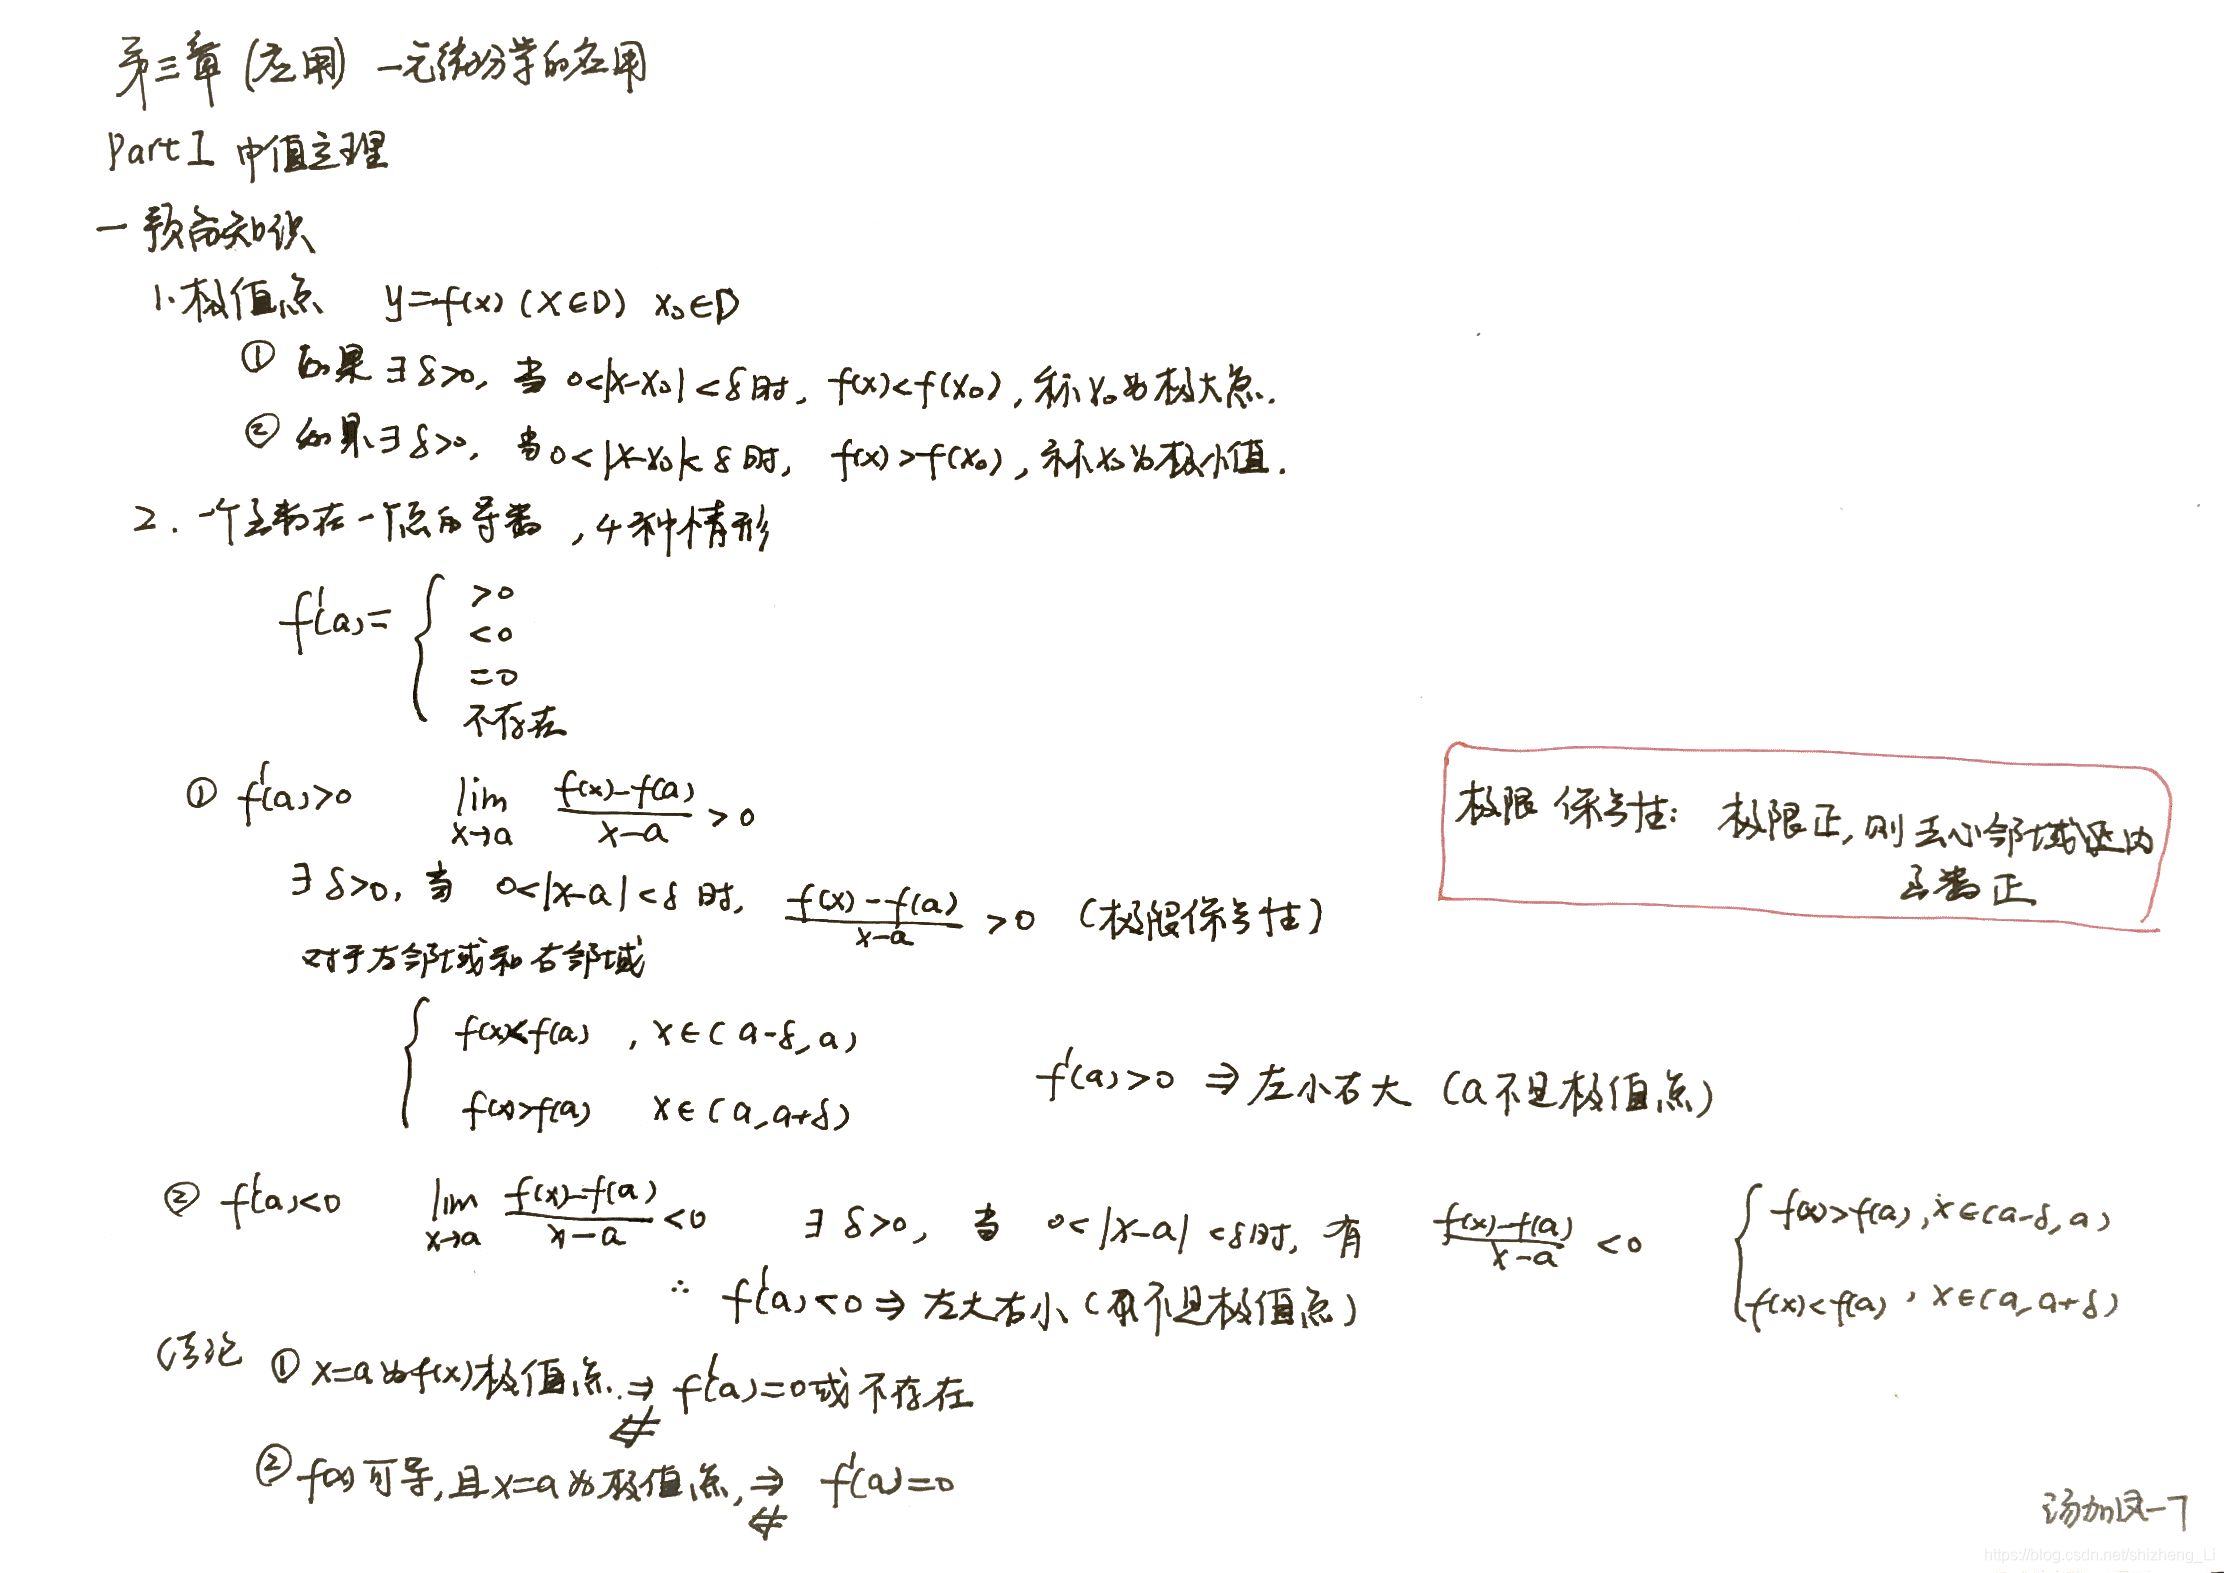 第三章 (应用) 一元微分学的应用
Part I 中值定理
一 预备知识
1. 极值点 y=f(x) (x∈D) x₀∈D
① 如果 ∃ δ>0, 当 0<|x-x₀|<δ时, f(x)<f(x₀), 称x₀为极大点.
② 如果 ∃ δ>0, 当0<|x-x₀|<δ时, f(x)>f(x₀), 称x₀为极小值.
2. 一个函数在一个点的导数, 4种情形
f'(a)= {
>0
<0
=0
不存在
① f'(a)>0 lim x→a (f(x)-f(a))/(x-a) >0
∃ δ>0, 当 0<|x-a|<δ 时, (f(x)-f(a))/(x-a) >0 (极限保号性)
极限 保号性: 极限正, 则去心邻域区内
函数正
对于左邻域和右邻域
{ f(x)<f(a), x∈(a-δ, a)
f(x)>f(a) x∈(a, a+δ)
f'(a)>0 ⇒ 左小右大 (a不是极值点)
② f'(a)<0 lim x→a (f(x)-f(a))/(x-a) <0 ∃ δ>0, 当 0<|x-a|<δ时, 有 (f(x)-f(a))/(x-a) <0 { f(x)>f(a), x∈(a-δ, a)
f(x)<f(a), x∈(a, a+δ)
∴ f'(a)<0 ⇒ 左大右小 (不是极值点)
结论 ① x=a为f(x)极值点. ⇒ f'(a)=0或不存在
⇍
② f(x)可导, 且x=a为极值点, ⇒ f'(a)=0
⇍
汤加凤-7
https://blog.csdn.net/shizheng_Li